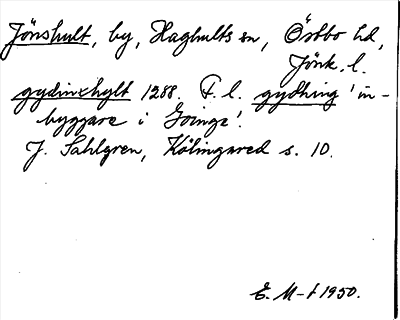 Jönshult, by, Haghults sn, Östbo hd,
Jönk. l.
gydinxhylt 1288. F. l. gything 'in-
byggare i Göinge'.
J. Sahlgren, Kölingared s. 10.
E. M-t 1950.